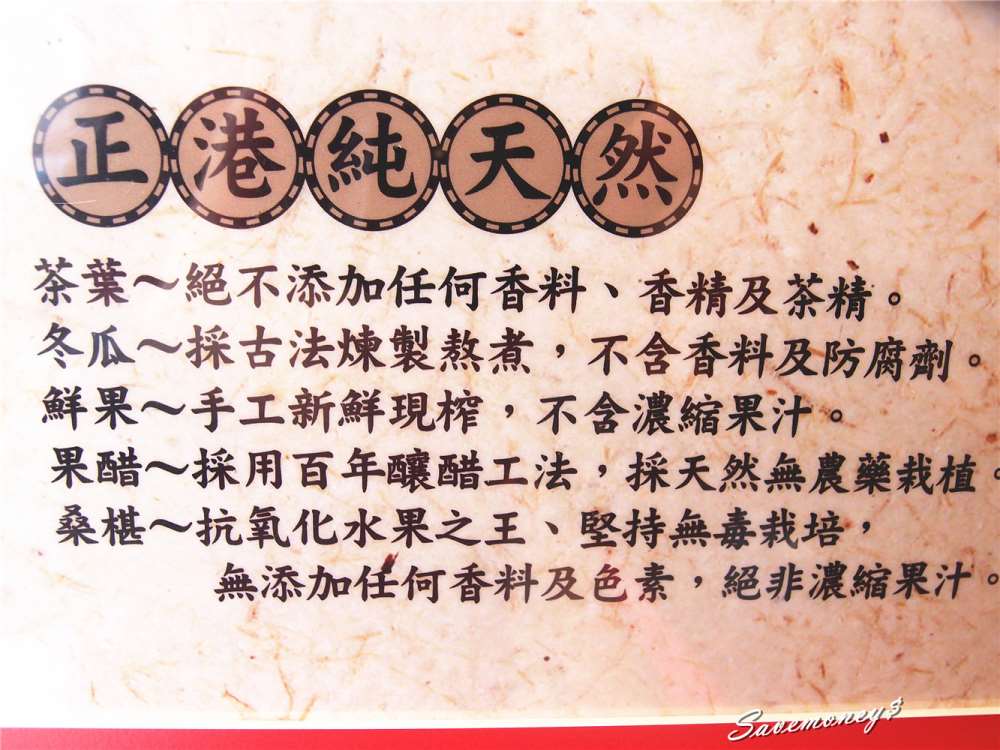 正港純天然
茶葉～絕不添加任何香料、香精及茶精。
冬瓜～採古法煉製熬煮，不含香料及防腐劑。
鮮果～手工新鮮現榨，不含濃縮果汁。
果醋～採用百年釀醋工法，採天然無農藥栽植。
桑椹～抗氧化水果之王、堅持無毒栽培，
無添加任何香料及色素，絕非濃縮果汁。
Savemoney$